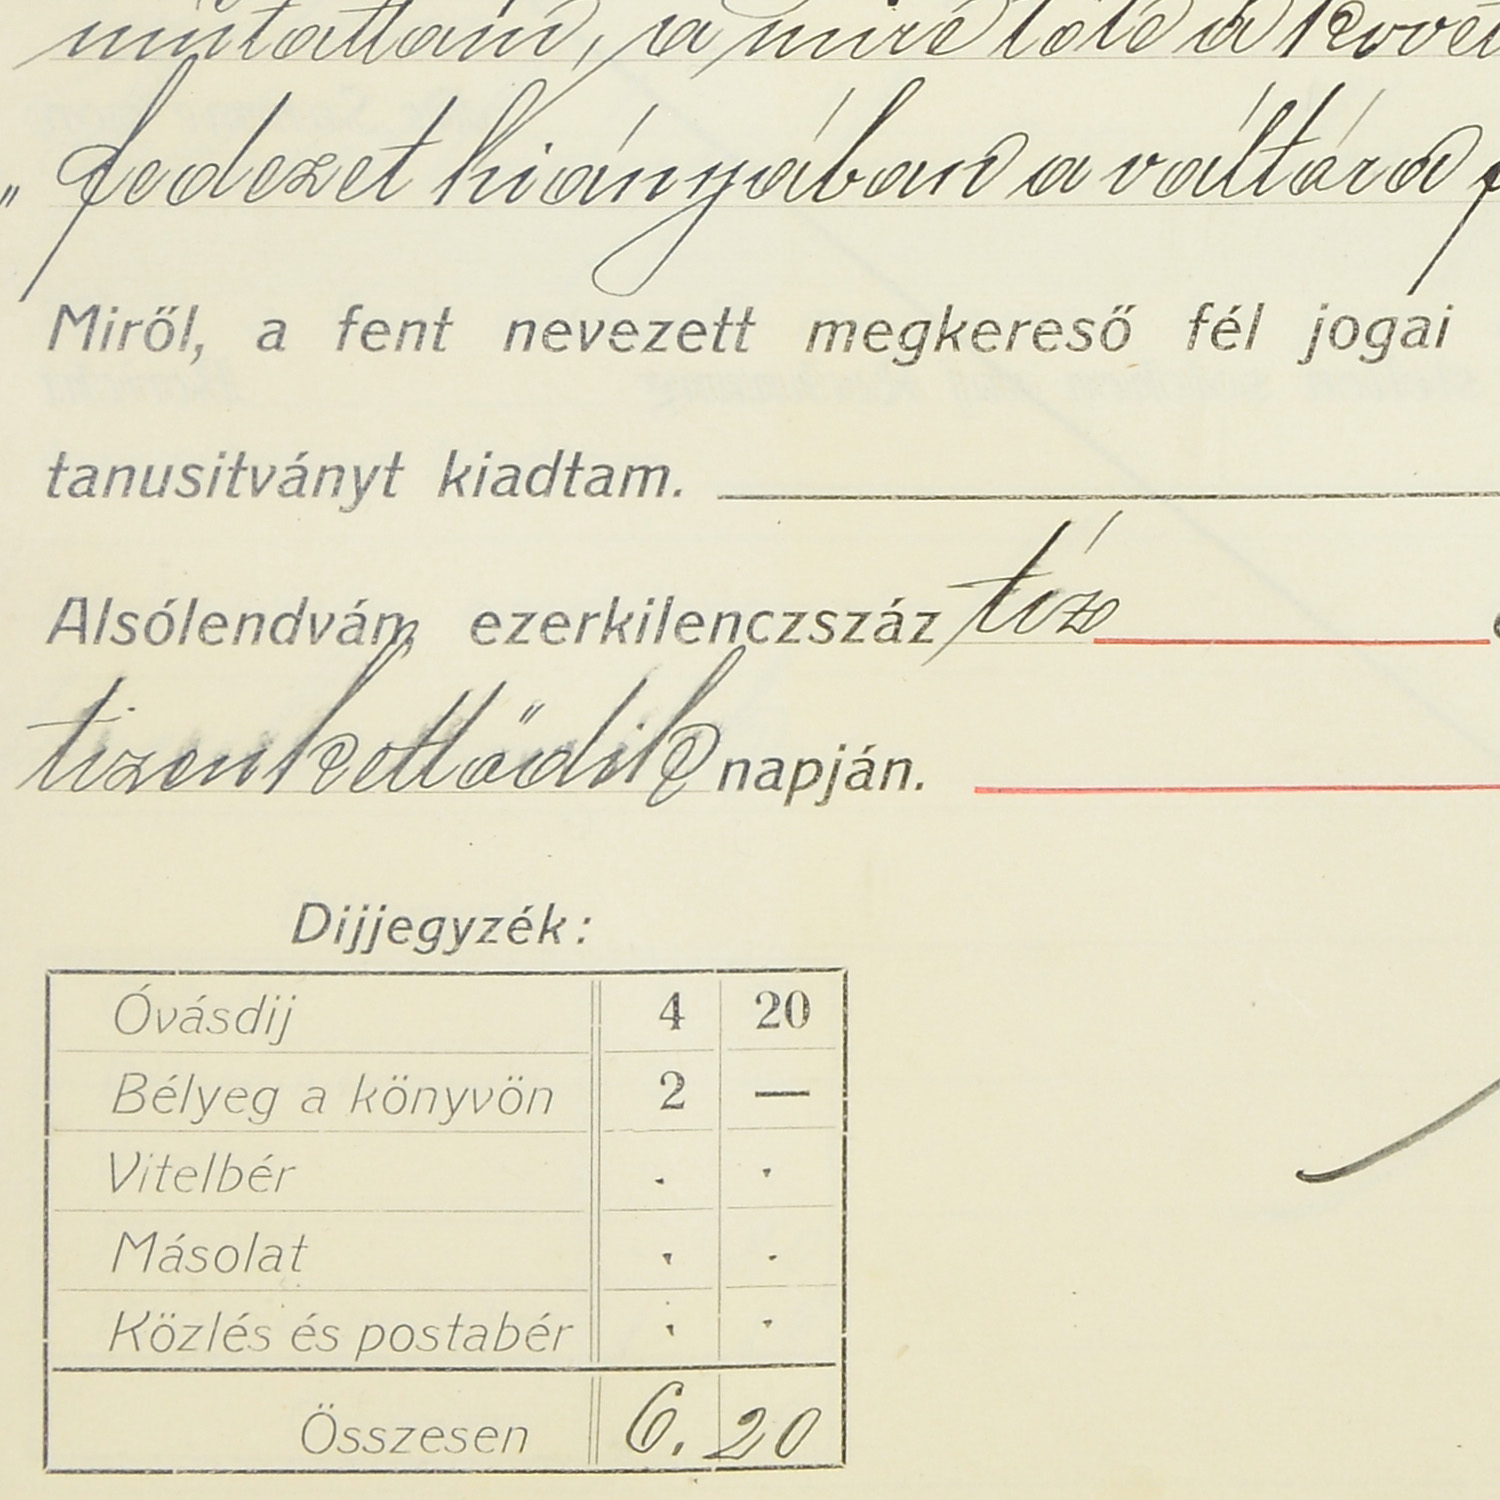 mutattam, a mire tőle a követ
„ fedezet hiányában a váltóra f
Miről, a fent nevezett megkereső fél jogai
tanusitványt kiadtam.
Alsólendván, ezerkilenczszáz tíz
tizenkettődik napján.
Dijjegyzék:
Óvásdij 4 20
Bélyeg a könyvön 2 —
Vitelbér . .
Másolat . .
Közlés és postabér . .
Összesen 6. 20